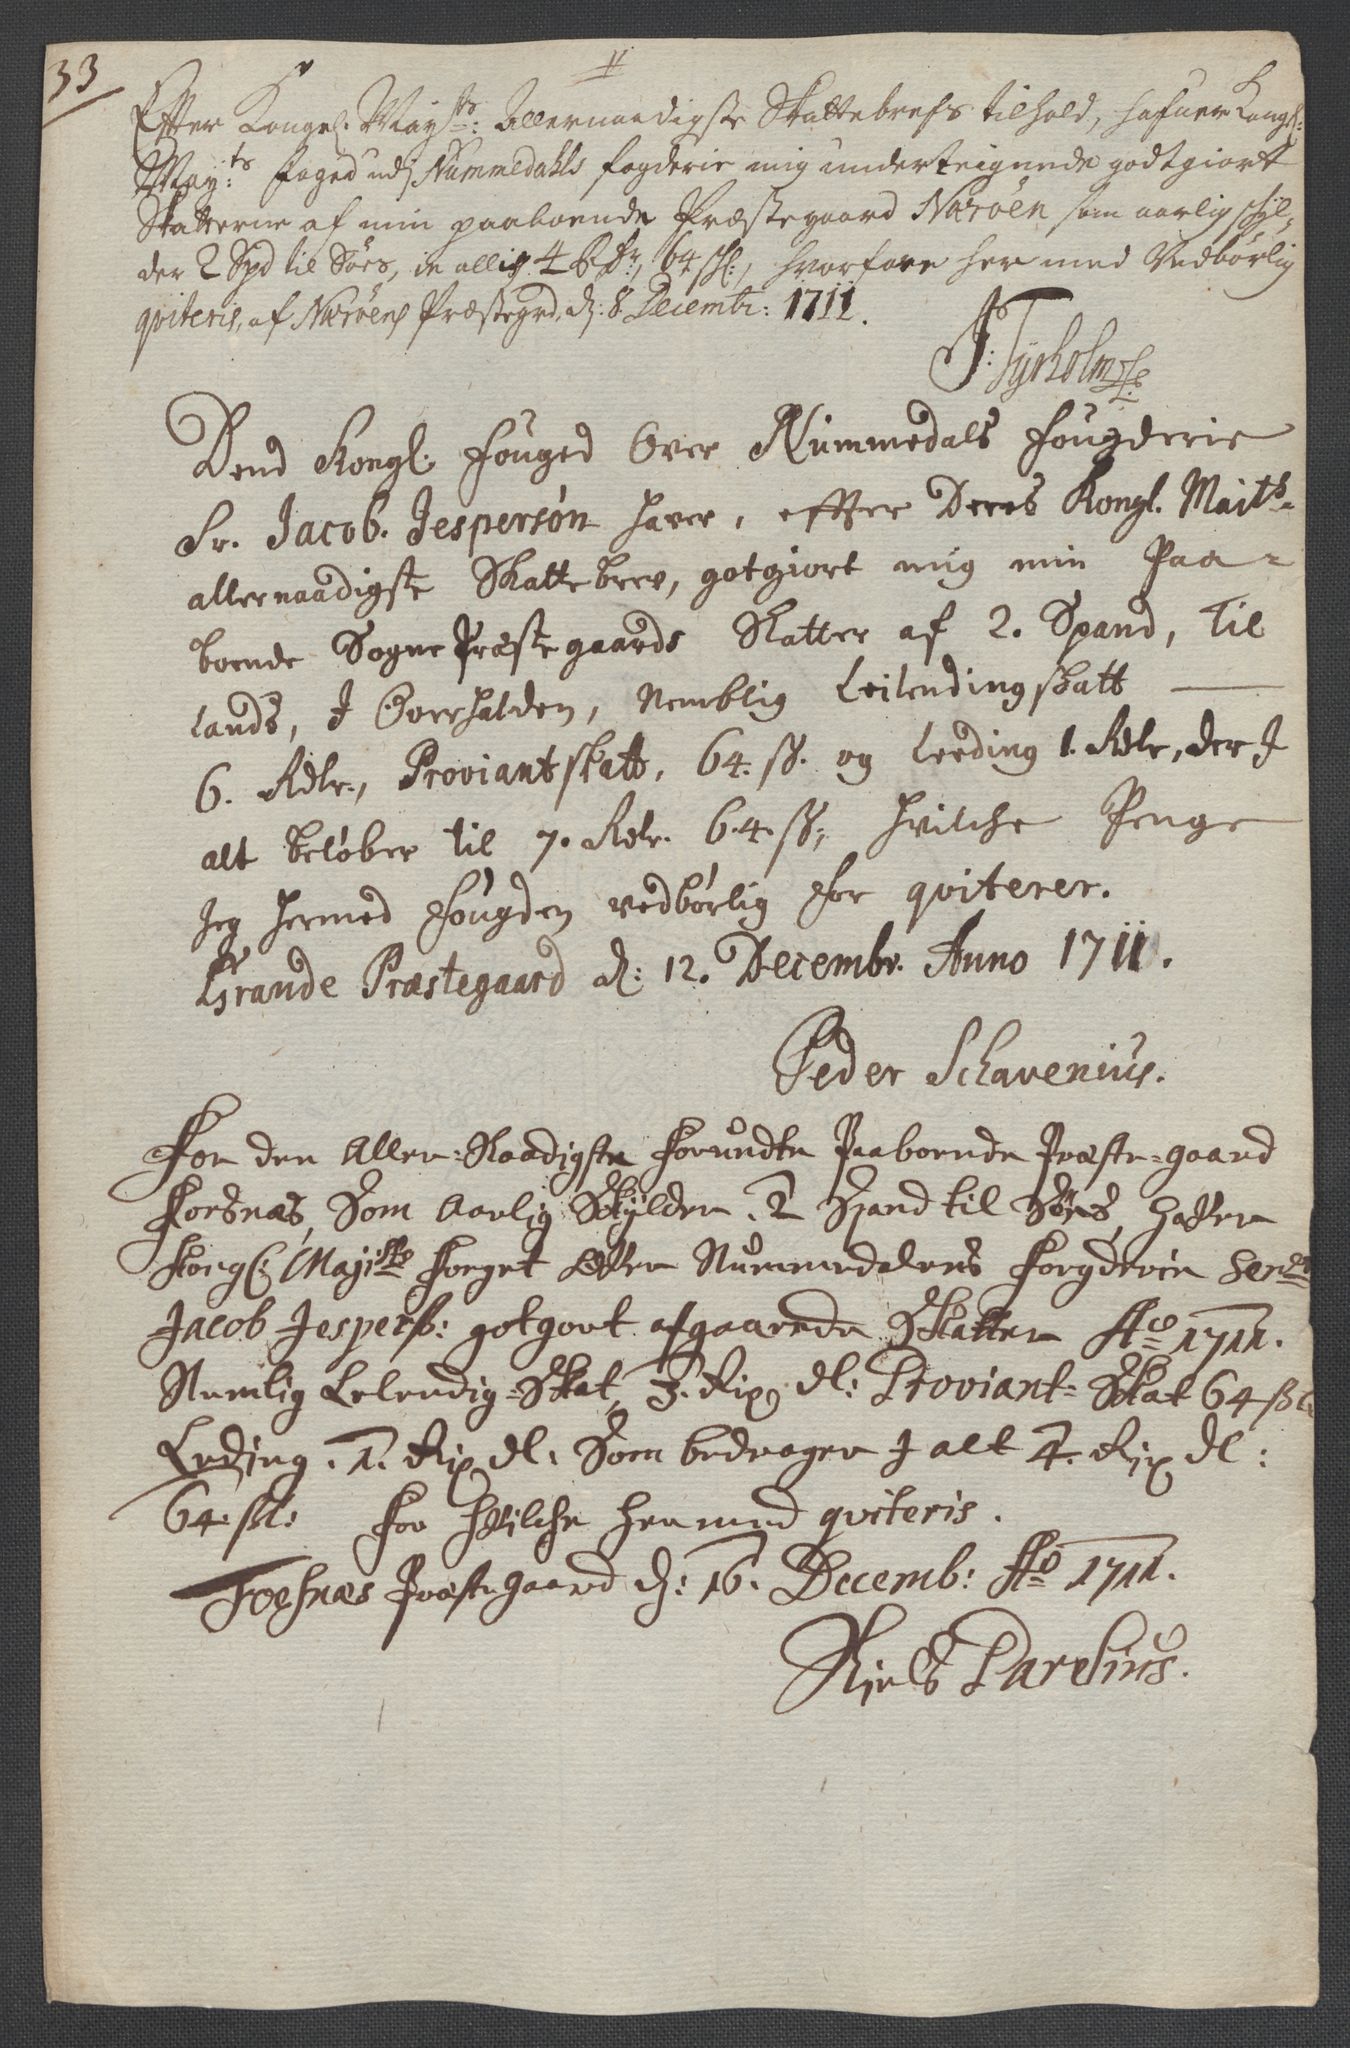 33
Efter Kongel. May.ts: Allernaadigste Skattebrefs tilhold, hafuer Kongel:
May:ts foged udj Nummedahls fogderie mig underteignede godtgiort
Skatterne af min paaboende Præstegaard Nærøen som aarlig schyl-
der 2 Spd til Søes, 4 64 sk:, hvorfore her med Vedbørlig
qviteris, af Nærøens Præstegrd, d: 8 Decembr: 1711.
J: Tyrholm
Dend Kongl. Fouged Over Nummedals Fougderie
Sr. Jacob. Jespersøn haver, efter Deres Kongl. Maits
allernaadigste Skattebrev, gotgiort mig min Paa-
boende Sogne Præstegaards Skatter af 2. Spand, til
Lands, I Overhalden, Nemblig Leilendingskatt
6. Rdlr., Proviantskatt, 64. sk. og Leeding 1. Rdlr, der I
alt beløber til 7. Rdr. 64. sk, hvilche Penge
Jeg hermed Fougden vedbørlig for qviterer.
Grande Præstegaard d: 12. Decembr. Anno 1711.
Peder Schavenius.
For den Aller-Naadigste Forundte Paaboende Præste-gaard
Fosnæs, Som Aarlig Skylder 2 Spand til Søes, hafver
Kongl: Majts Foget Ofver Nummedalens Fogderie
Jacob Jespers: gotgort afgaaende Skatter Ao 1711.
Nemlig Lelendig-Skat, 3. Rix dl: Proviant-Skat 64 sk
Leding. 1. Rix dl: Som bedrager I alt 4. Rix dl:
64. sk: For hvilche hermed qviteris.
Foesnæs Præstegaard d: 16. Decemb: Ao 1711.
Niels Parelius.